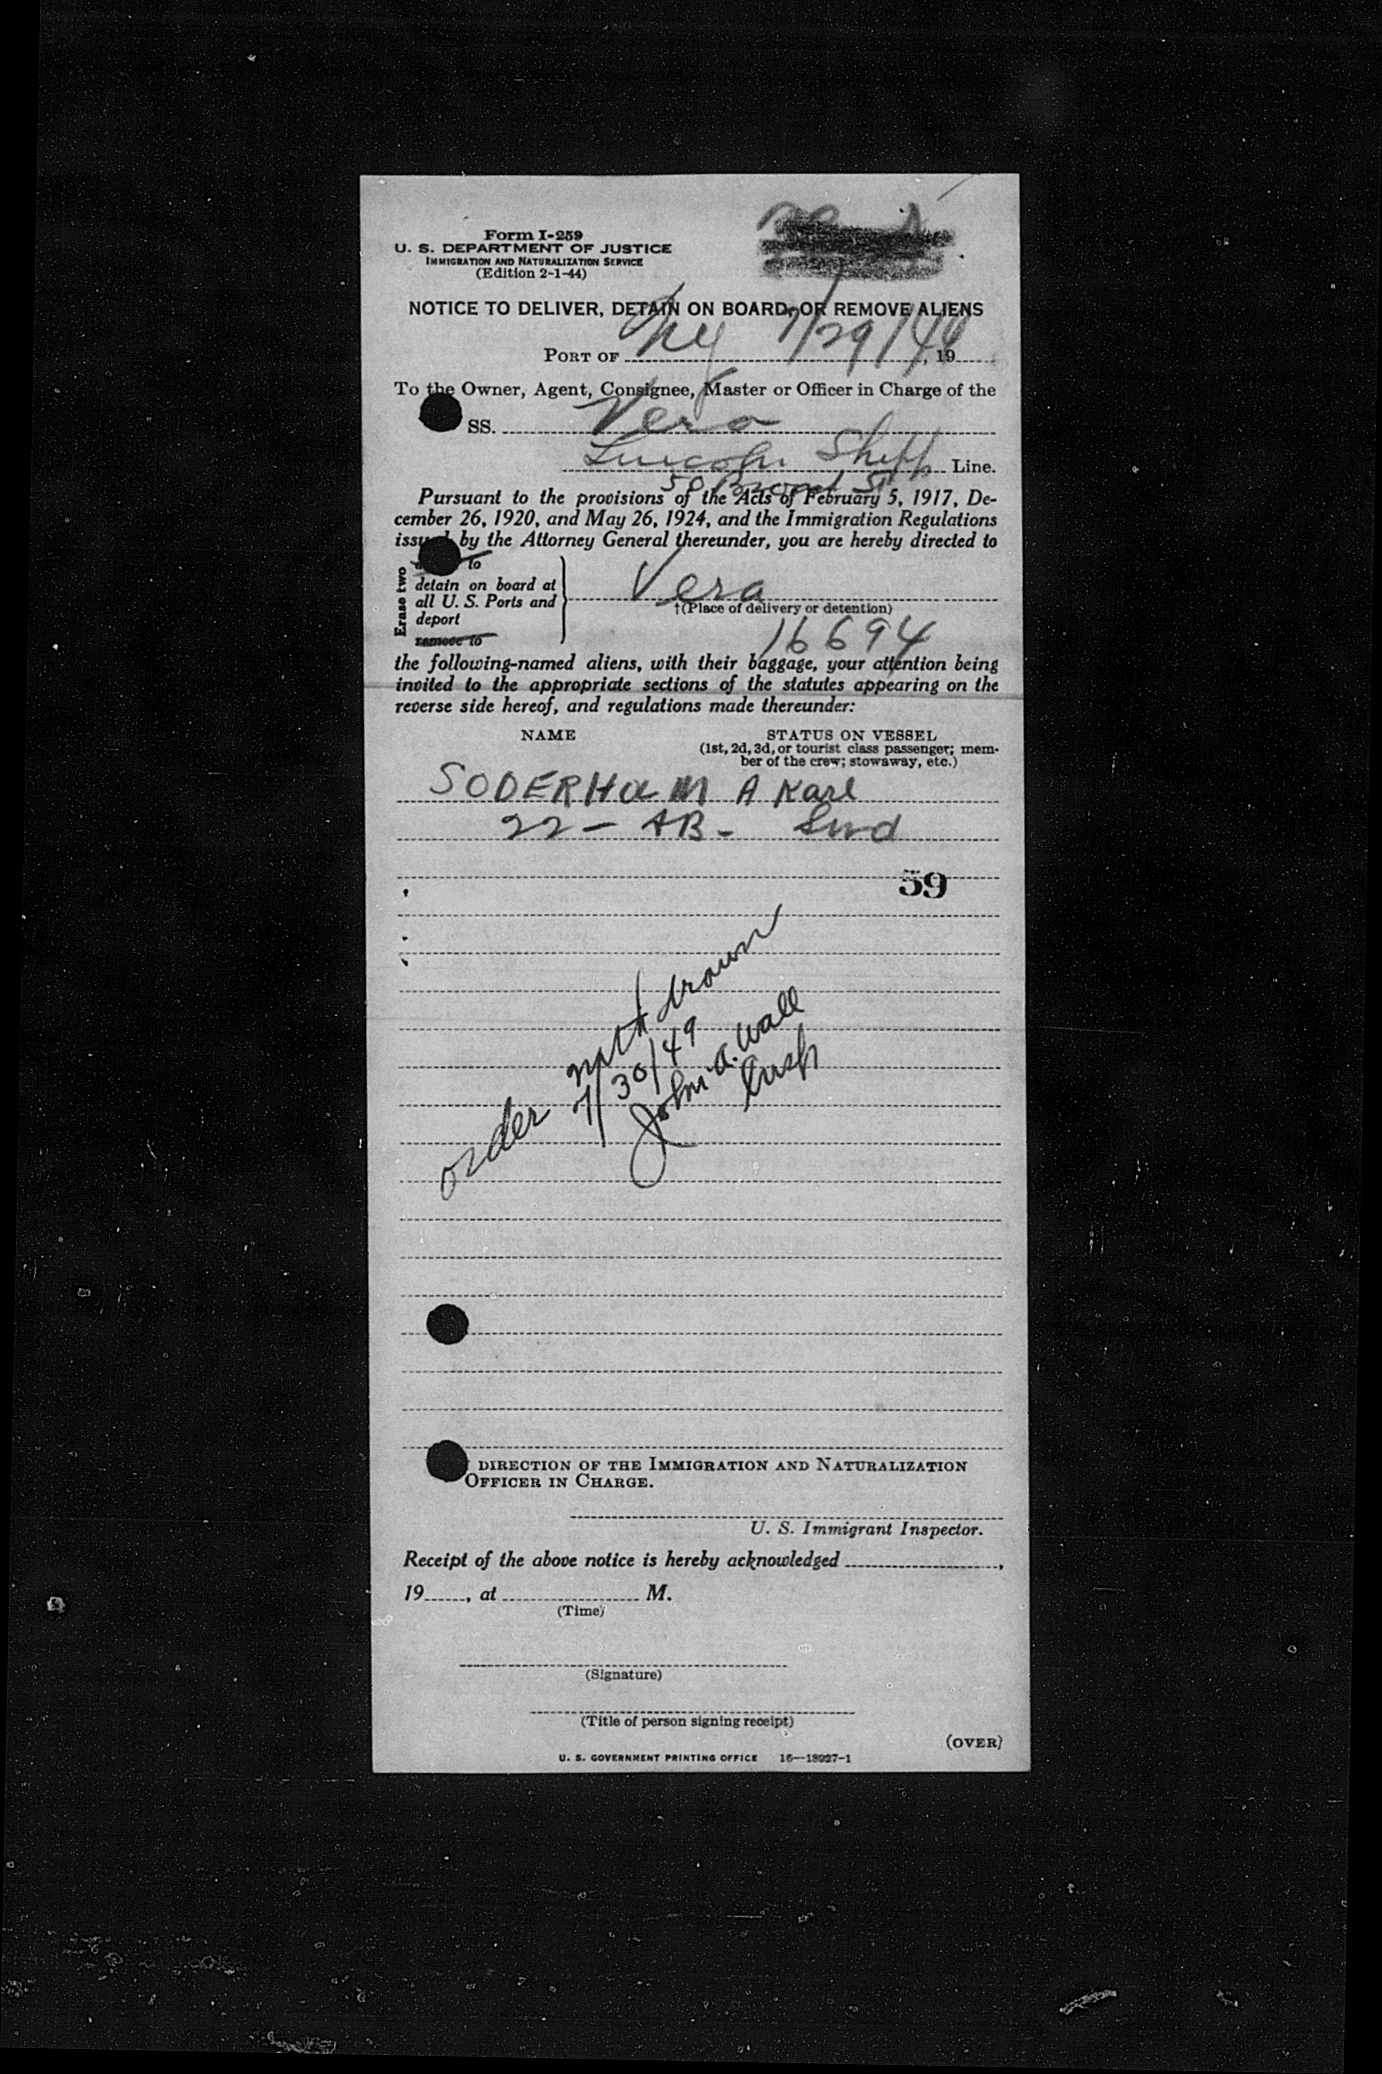 Form I-259
U. S. DEPARTMENT OF JUSTICE
IMMIGRATION AND NATURALIZATION SERVICE
(Edition 2-1-44)
NOTICE TO DELIVER, DETAIN ON BOARD, OR REMOVE ALIENS
PORT OF NY 7/29/49, 19
To the Owner, Agent, Consignee, Master or Officer in Charge of the
SS. Vera
Lincoln Shipp Line.
50 Broad St
Pursuant to the provisions of the Acts of February 5, 1917, De-
cember 26, 1920, and May 26, 1924, and the Immigration Regulations
issued by the Attorney General thereunder, you are hereby directed to
Erase two
to
detain on board at
all U. S. Ports and
deport
remove to
Vera
†(Place of delivery or detention)
16694
the following-named aliens, with their baggage, your attention being
invited to the appropriate sections of the statutes appearing on the
reverse side hereof, and regulations made thereunder:
NAME STATUS ON VESSEL
(1st, 2d, 3d, or tourist class passenger; mem-
ber of the crew; stowaway, etc.)
SODERHOLM A Karl
22 - AB - Swd
59
order withdrawn
7/30/49
John A. Wall
Insp
DIRECTION OF THE IMMIGRATION AND NATURALIZATION
OFFICER IN CHARGE.
U. S. Immigrant Inspector.
Receipt of the above notice is hereby acknowledged ,
19 , at M.
(Time)
(Signature)
(Title of person signing receipt)
(OVER)
U. S. GOVERNMENT PRINTING OFFICE 16—18927-1